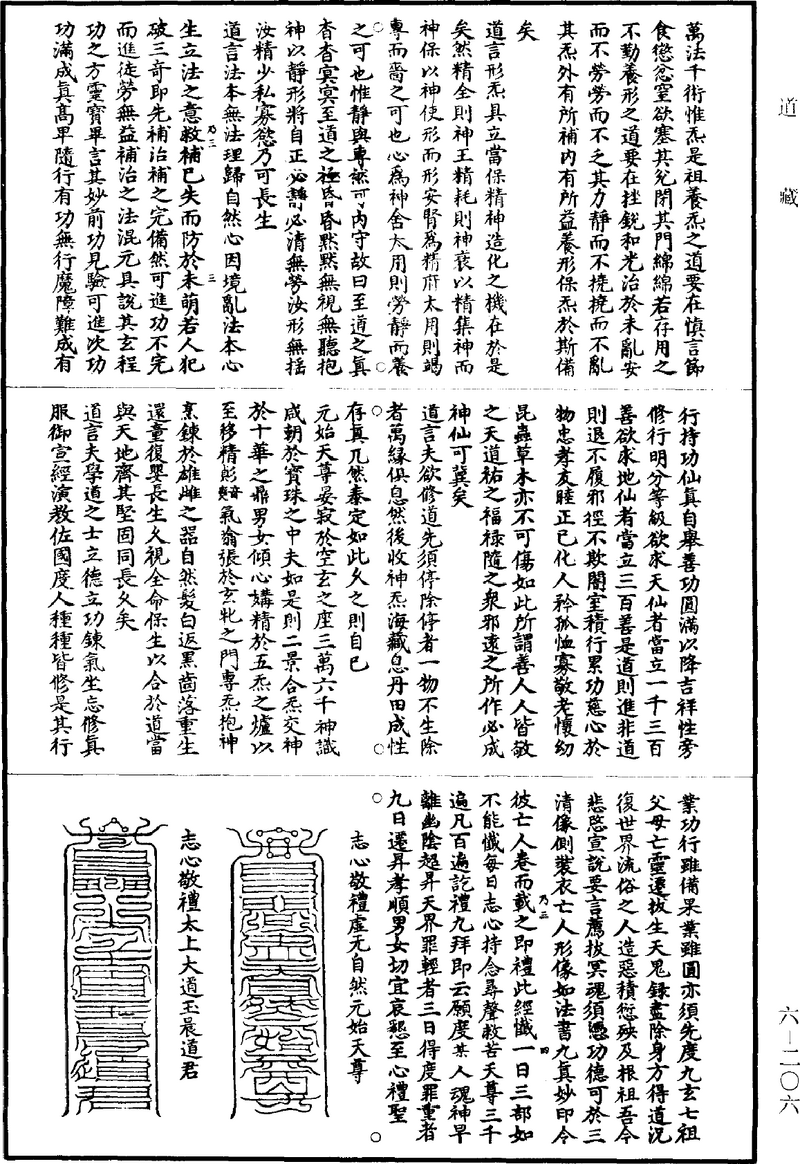 道藏
六—二〇六
萬法千術惟炁是祖養炁之道要在慎言節
食懲忿窒欲塞其兌閉其門綿綿若存用之
不勤養形之道要在挫銳和光治於未亂安
而不勞勞而不乏其力靜而不撓撓而不亂
其炁外有所補內有所益養形保炁於斯備
矣
道言形炁具立當保精神造化之機在於是
矣然精全則神王精耗則神衰以精集神而
神保以神使形而形安腎為精府太用則竭
專而嗇之可也心為神舍太用則勞靜而養
之可也惟靜與專然可內守故曰至道之真
杳杳冥冥至道之極昏昏默默無視無聽抱
神以靜形將自正必靜必清無勞汝形無搖
汝精少私寡慾乃可長生
道言法本無法理歸自然心因境亂法本心
生立法之意救補已失而防於未萌若人犯
乃三
破三奇即先補治補之完備然可進功不完
而進徒勞無益補治之法混元具說其玄程
三
功之方靈寶畢言其妙前功見驗可進次功
功滿成真高卑隨行有功無行魔障難成有
行持功仙真自舉善功圓滿以降吉祥性旁
修行明分等級欲求天仙者當立一千三百
善欲求地仙者當立三百善是道則進非道
則退不履邪徑不欺闇室積行累功慈心於
物忠孝友睦正已化人矜孤恤寡敬老懷幼
昆蟲草木亦不可傷如此所謂善人人皆敬
之天道祐之福祿隨之眾邪遠之所作必成
神仙可冀矣
道言夫欲修道先須停除停者一物不生除
者萬緣俱息然後收神炁海藏息丹田成性
存真兀然泰定如此久之則自已
元始天尊晏寂於空玄之座三萬六千神識
咸朝於寶珠之中夫如是則二景合炁交神
於十華之鼎男女傾心媾精於五炁之爐以
至移精髟氣翕張於玄牝之門專炁抱神
烹鍊於雄雌之器自然髮白返黑齒落重生
還童復嬰長生久視全命保生以合於道當
與天地齊其堅固同長久矣
道言夫學道之士立德立功鍊氣坐忘修真
服御宣經演教佐國度人種種皆修是其行
業功行雖備果業雖圓亦須先度九玄七祖
父母亡靈遷拔生天鬼錄盡除身方得道況
復世界流俗之人造惡積愆殃及根祖吾今
悲愍宣說要言薦拔冥魂須憑功德可於三
清像側裝衣亡人形像如法書九真妙印令
彼亡人卷而戴之即禮此經懺一日三部如
乃三
四
不能懺每日志心持念尋聲救苦天尊三千
遍凡百遍訖禮九拜即云願度某人魂神早
離幽陰超昇天界罪輕者三日得度罪重者
九日遷昇孝順男女切宜哀懇至心禮聖
志心敬禮虛无自然元始天尊
志心敬禮太上大道玉晨道君